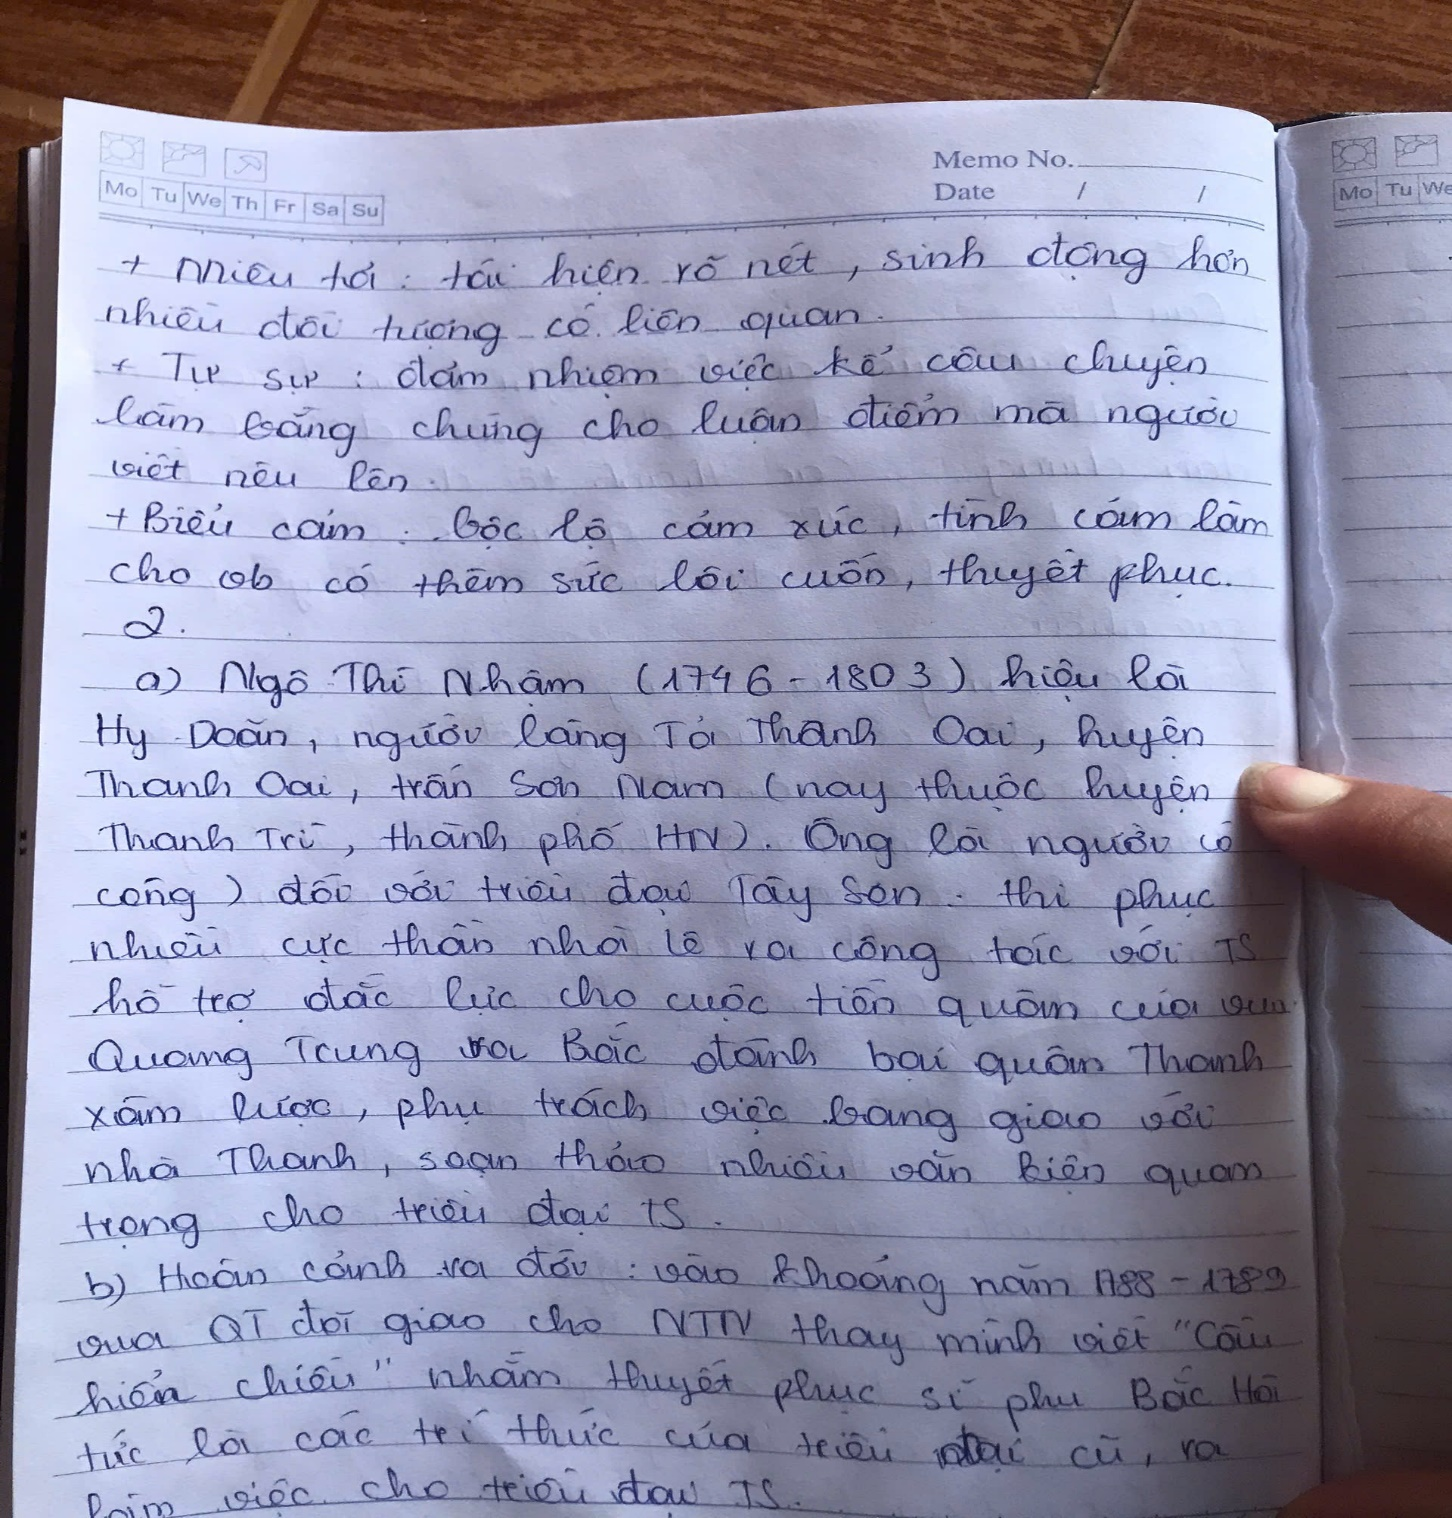 Memo No.
Mo Tu We Th Fr Sa Su
Date / /
Mo Tu We
+ Miêu tả : tái hiện rõ nét, sinh động hơn
nhiều đối tượng có liên quan.
+ Tự sự : đảm nhiệm việc kể câu chuyện
làm bằng chứng cho luận điểm mà người
viết nêu lên.
+ Biểu cảm : bộc lộ cảm xúc, tình cảm làm
cho vb có thêm sức lôi cuốn, thuyết phục.
2.
a) Ngô Thì Nhậm (1746 - 1803) hiệu là
Hy Doãn, người làng Tả Thanh Oai, huyện
Thanh Oai, trấn Sơn Nam (nay thuộc huyện
Thanh Trì, thành phố HN). Ông là người có
công ) đối với triều đại Tây Sơn. thi phục
nhiều cực thần nhà lê ra công tác với TS
hỗ trợ đắc lực cho cuộc tiến quân của vua
Quang Trung ra Bắc đánh bại quân Thanh
xâm lược, phụ trách việc bang giao với
nhà Thanh, soạn thảo nhiều văn kiện quan
trọng cho triều đại TS.
b) Hoàn cảnh ra đời : vào khoảng năm 1788 - 1789
vua QT đã giao cho NTN thay mình viết "Cầu
hiền chiếu" nhằm thuyết phục sĩ phu Bắc Hà
tức là các trí thức của triều đại cũ, ra
làm việc cho triều đại TS.